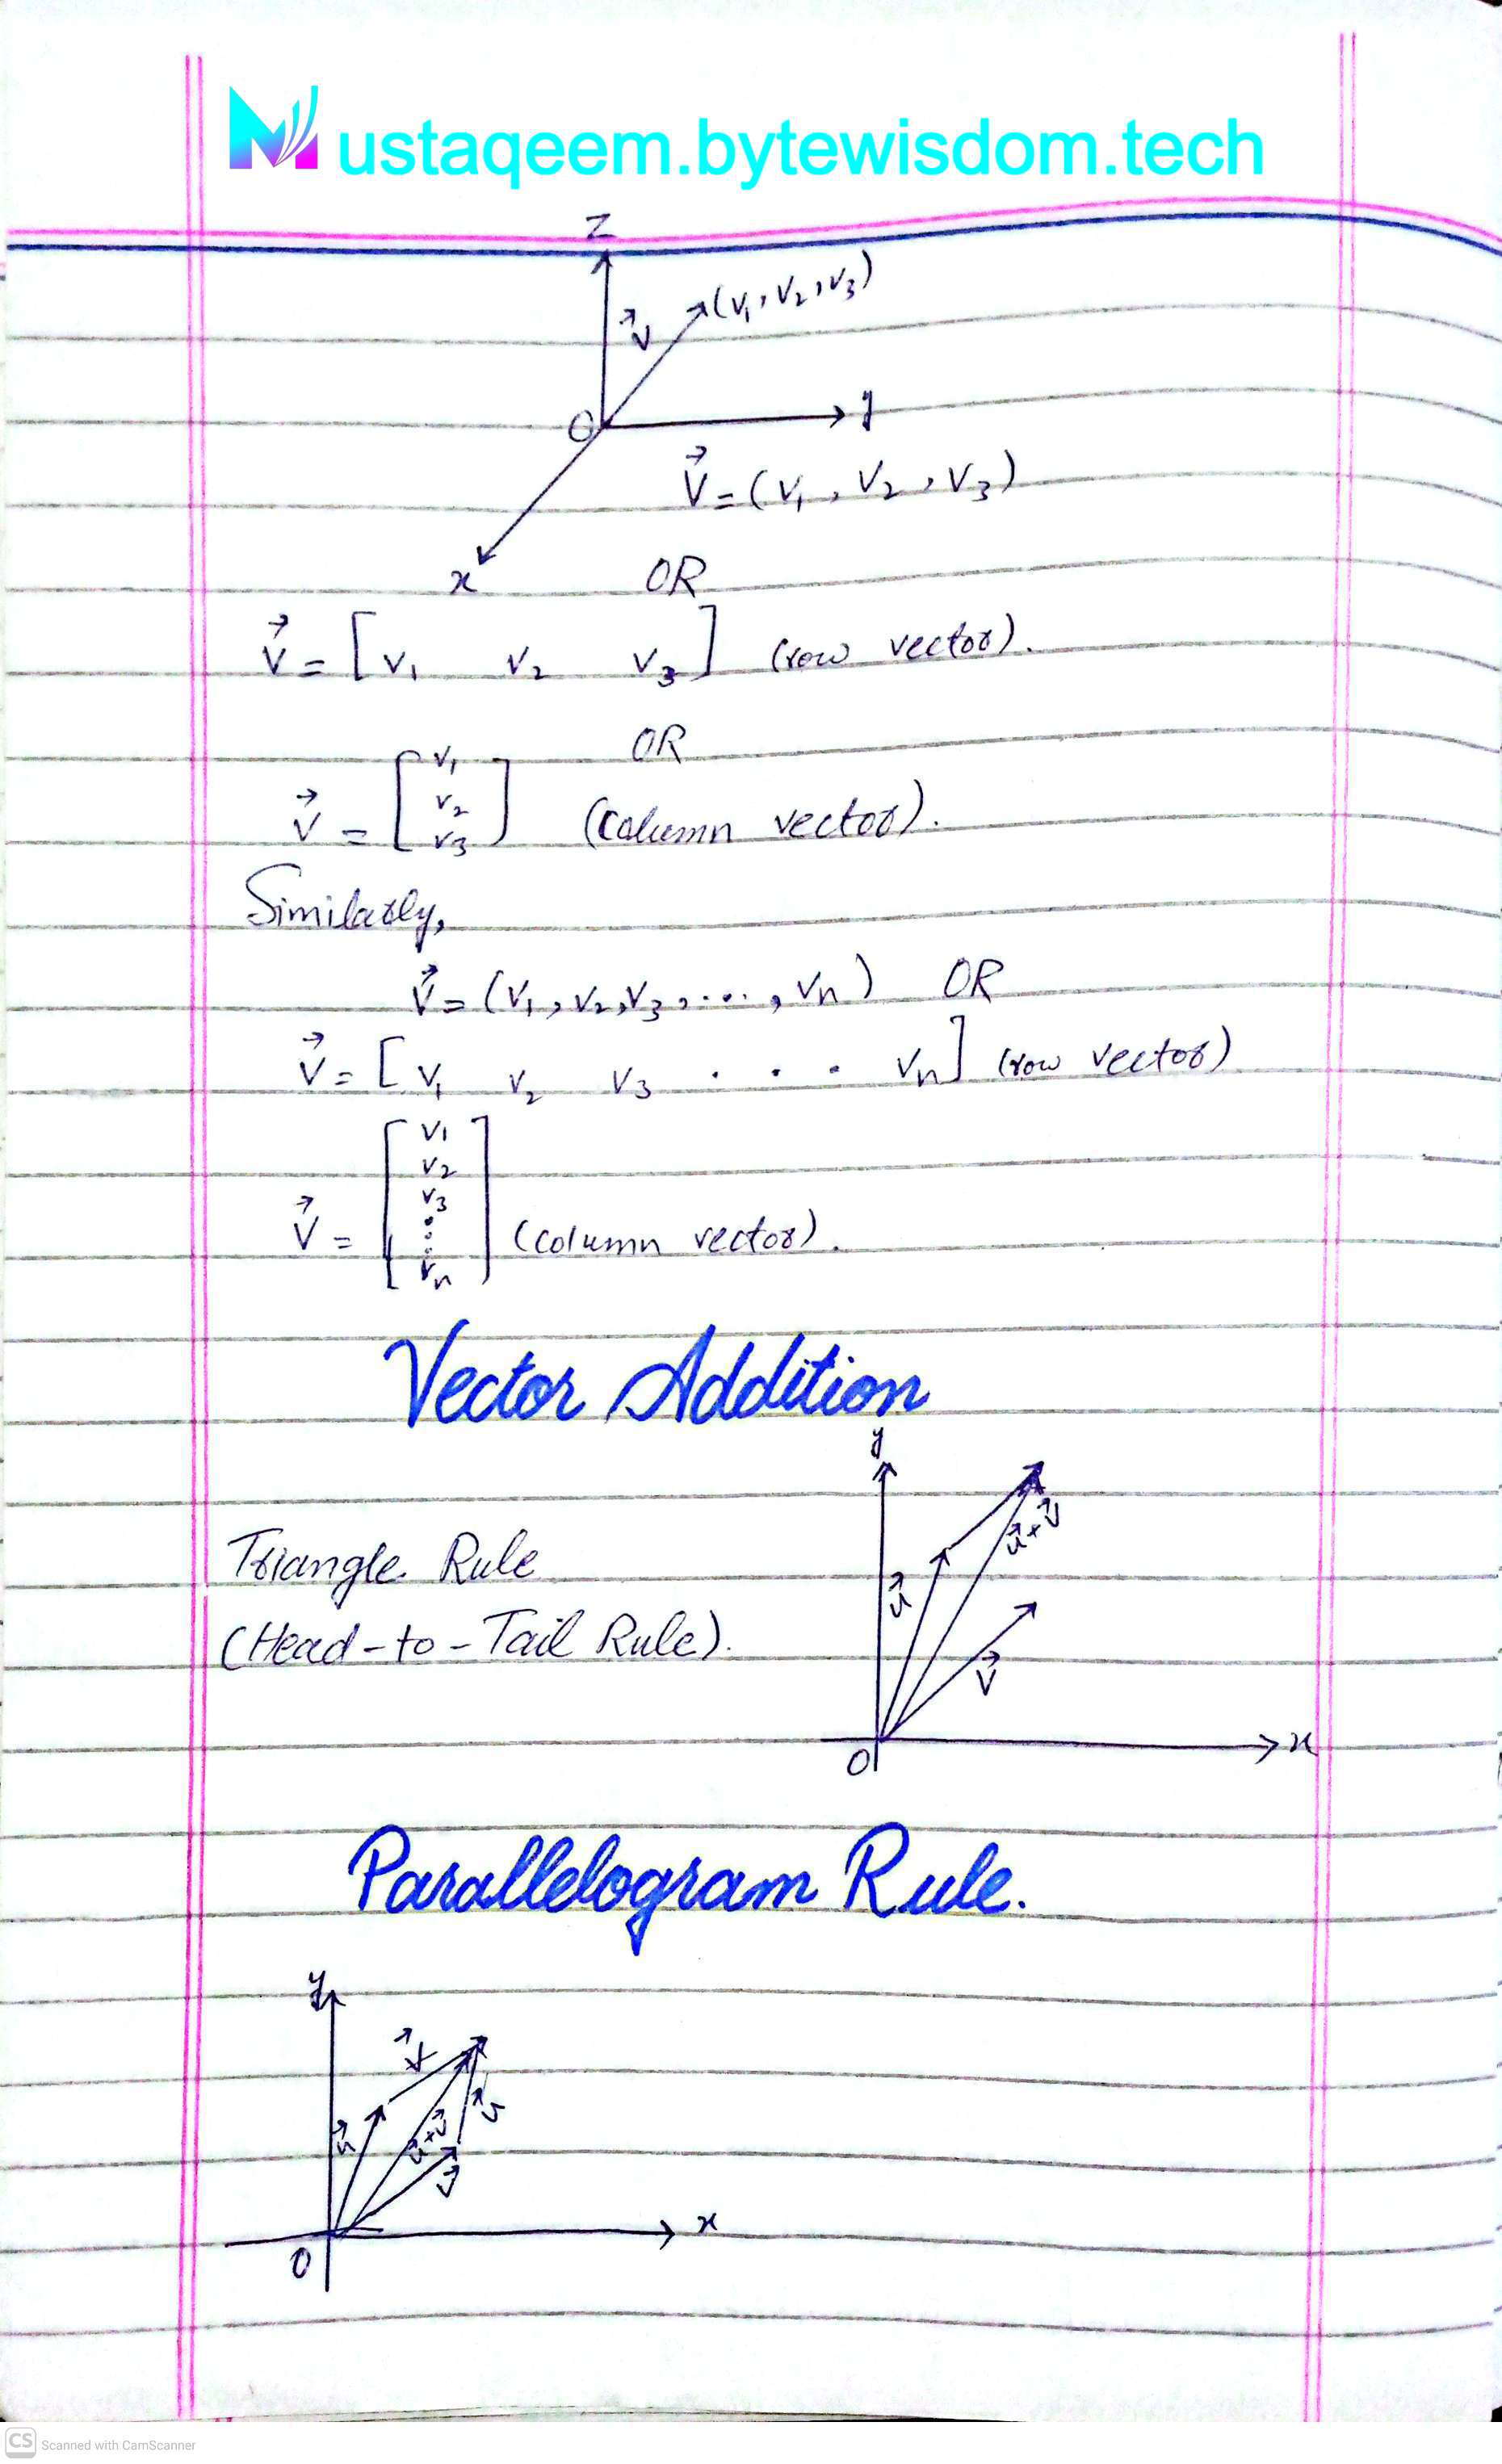 Mustaqeem.bytewisdom.tech
z
v⃗ (v₁, v₂, v₃)
O y
v⃗ = (v₁, v₂, v₃)
x OR
v⃗ = [v₁ v₂ v₃] (row vector).
OR
v⃗ = [v₁
v₂
v₃] (column vector).
Similarly,
v⃗ = (v₁, v₂, v₃, ..., vₙ) OR
v⃗ = [v₁ v₂ v₃ . . . vₙ] (row vector)
v⃗ = [v₁
v₂
v₃
⋮
vₙ] (column vector).
Vector Addition
y
u⃗+v⃗
Triangle Rule u⃗
(Head-to-Tail Rule). v⃗
O x
Parallelogram Rule.
y
v⃗
u⃗ u⃗+v⃗ u⃗
v⃗
x
O
CS Scanned with CamScanner